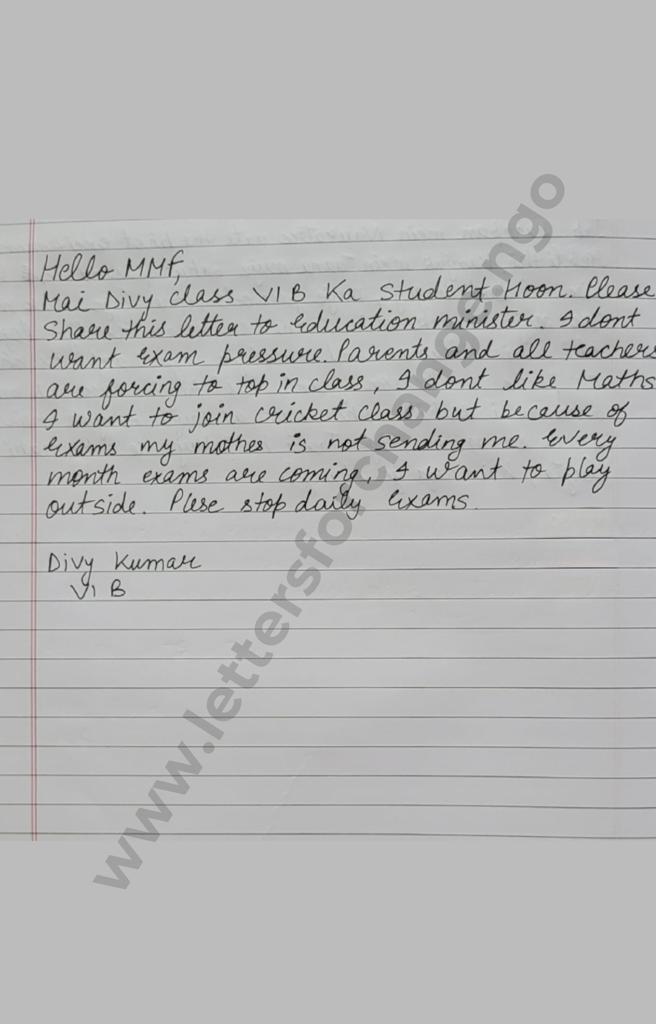 Hello MMF,
Mai Divy class VI B Ka Student Hoon. Please
Share this letter to education minister. I dont
want exam pressure. Parents and all teachers
are forcing to top in class, I dont like Maths
I want to join cricket class but because of
exams my mothes is not sending me. Every
month exams are coming, I want to play
outside. Plese stop daily exams.
Divy Kumar
VI B
www.lettersforchange.ngo